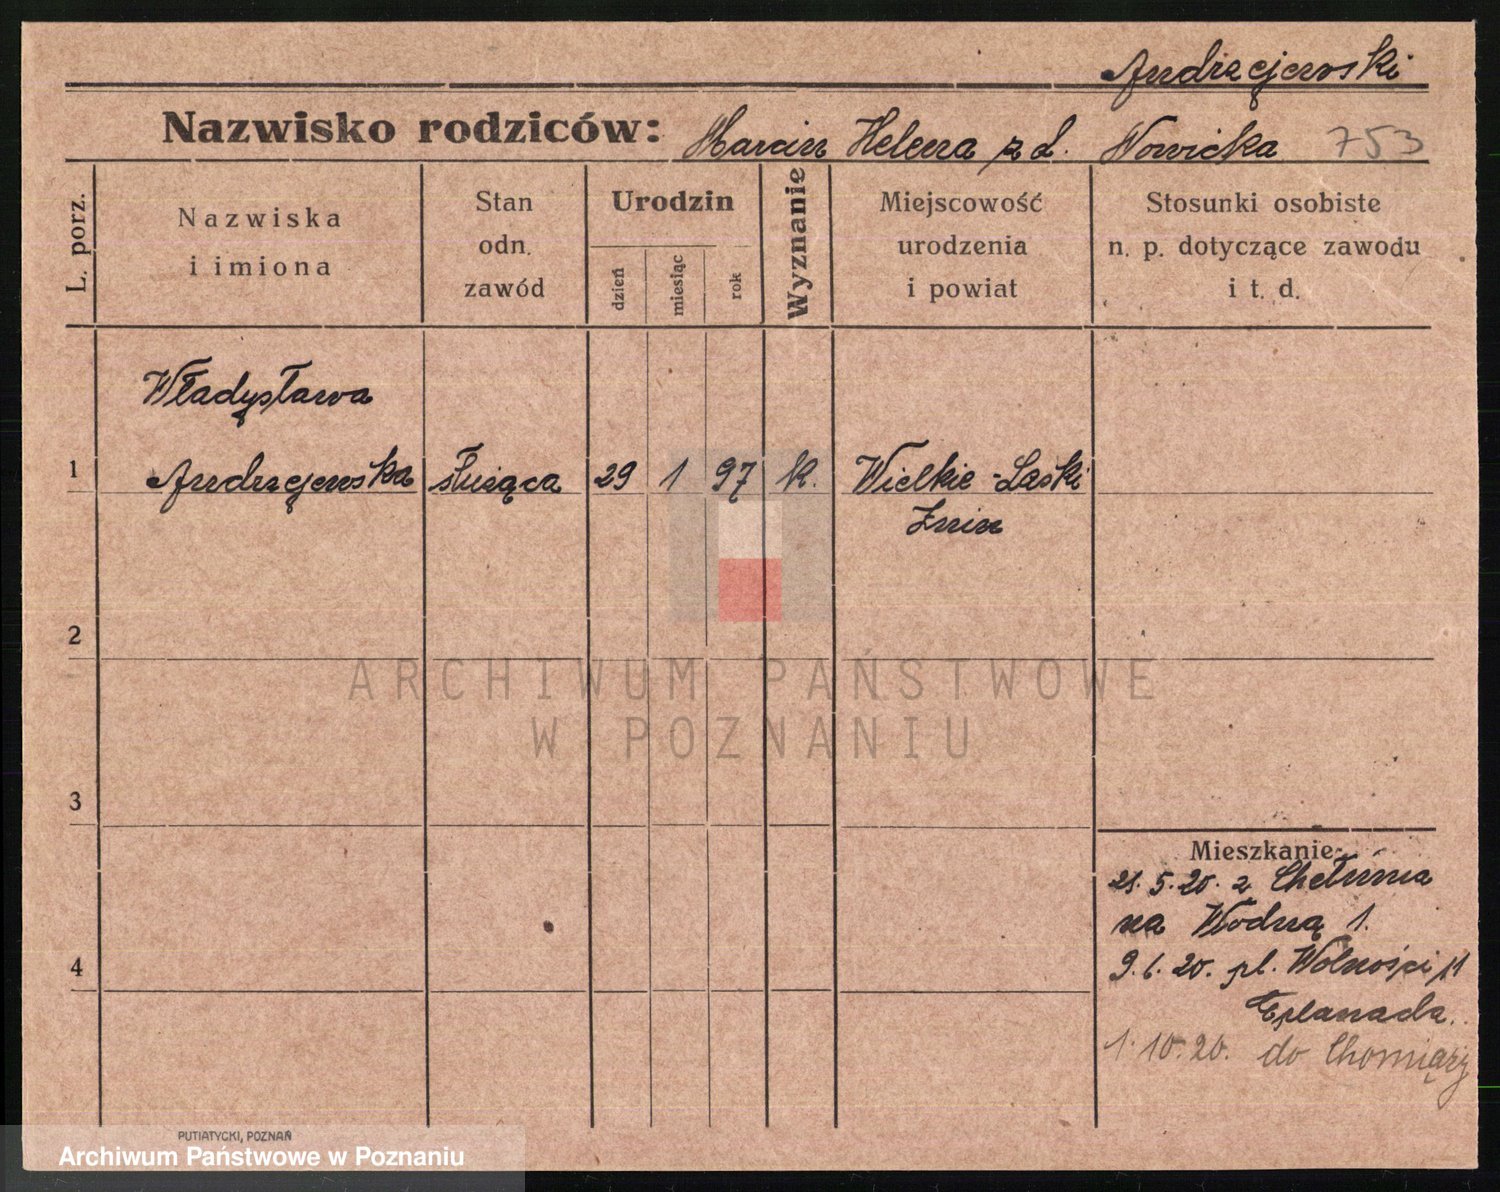 Andrzejewski
Nazwisko rodziców: Marcin Helena z d. Nowicka 753
L. porz.
Nazwiska
i imiona
Stan
odn.
zawód
Urodzin
dzień
miesiąc
rok
Wyznanie
Miejscowość
urodzenia
i powiat
Stosunki osobiste
n. p. dotyczące zawodu
i t. d.
Władysława
1 Andrzejewska służąca 29 1 97 k. Wielkie-Laski
Żnin
2
3
4
Mieszkanie
21.5.20. z Chełmna
na Wodną 1.
9.6.20. pl. Wolności 11
Esplanada.
1.10.20. do Chomiąży
PUTIATYCKI, POZNAŃ
ARCHIWUM PAŃSTWOWE
W POZNANIU
Archiwum Państwowe w Poznaniu